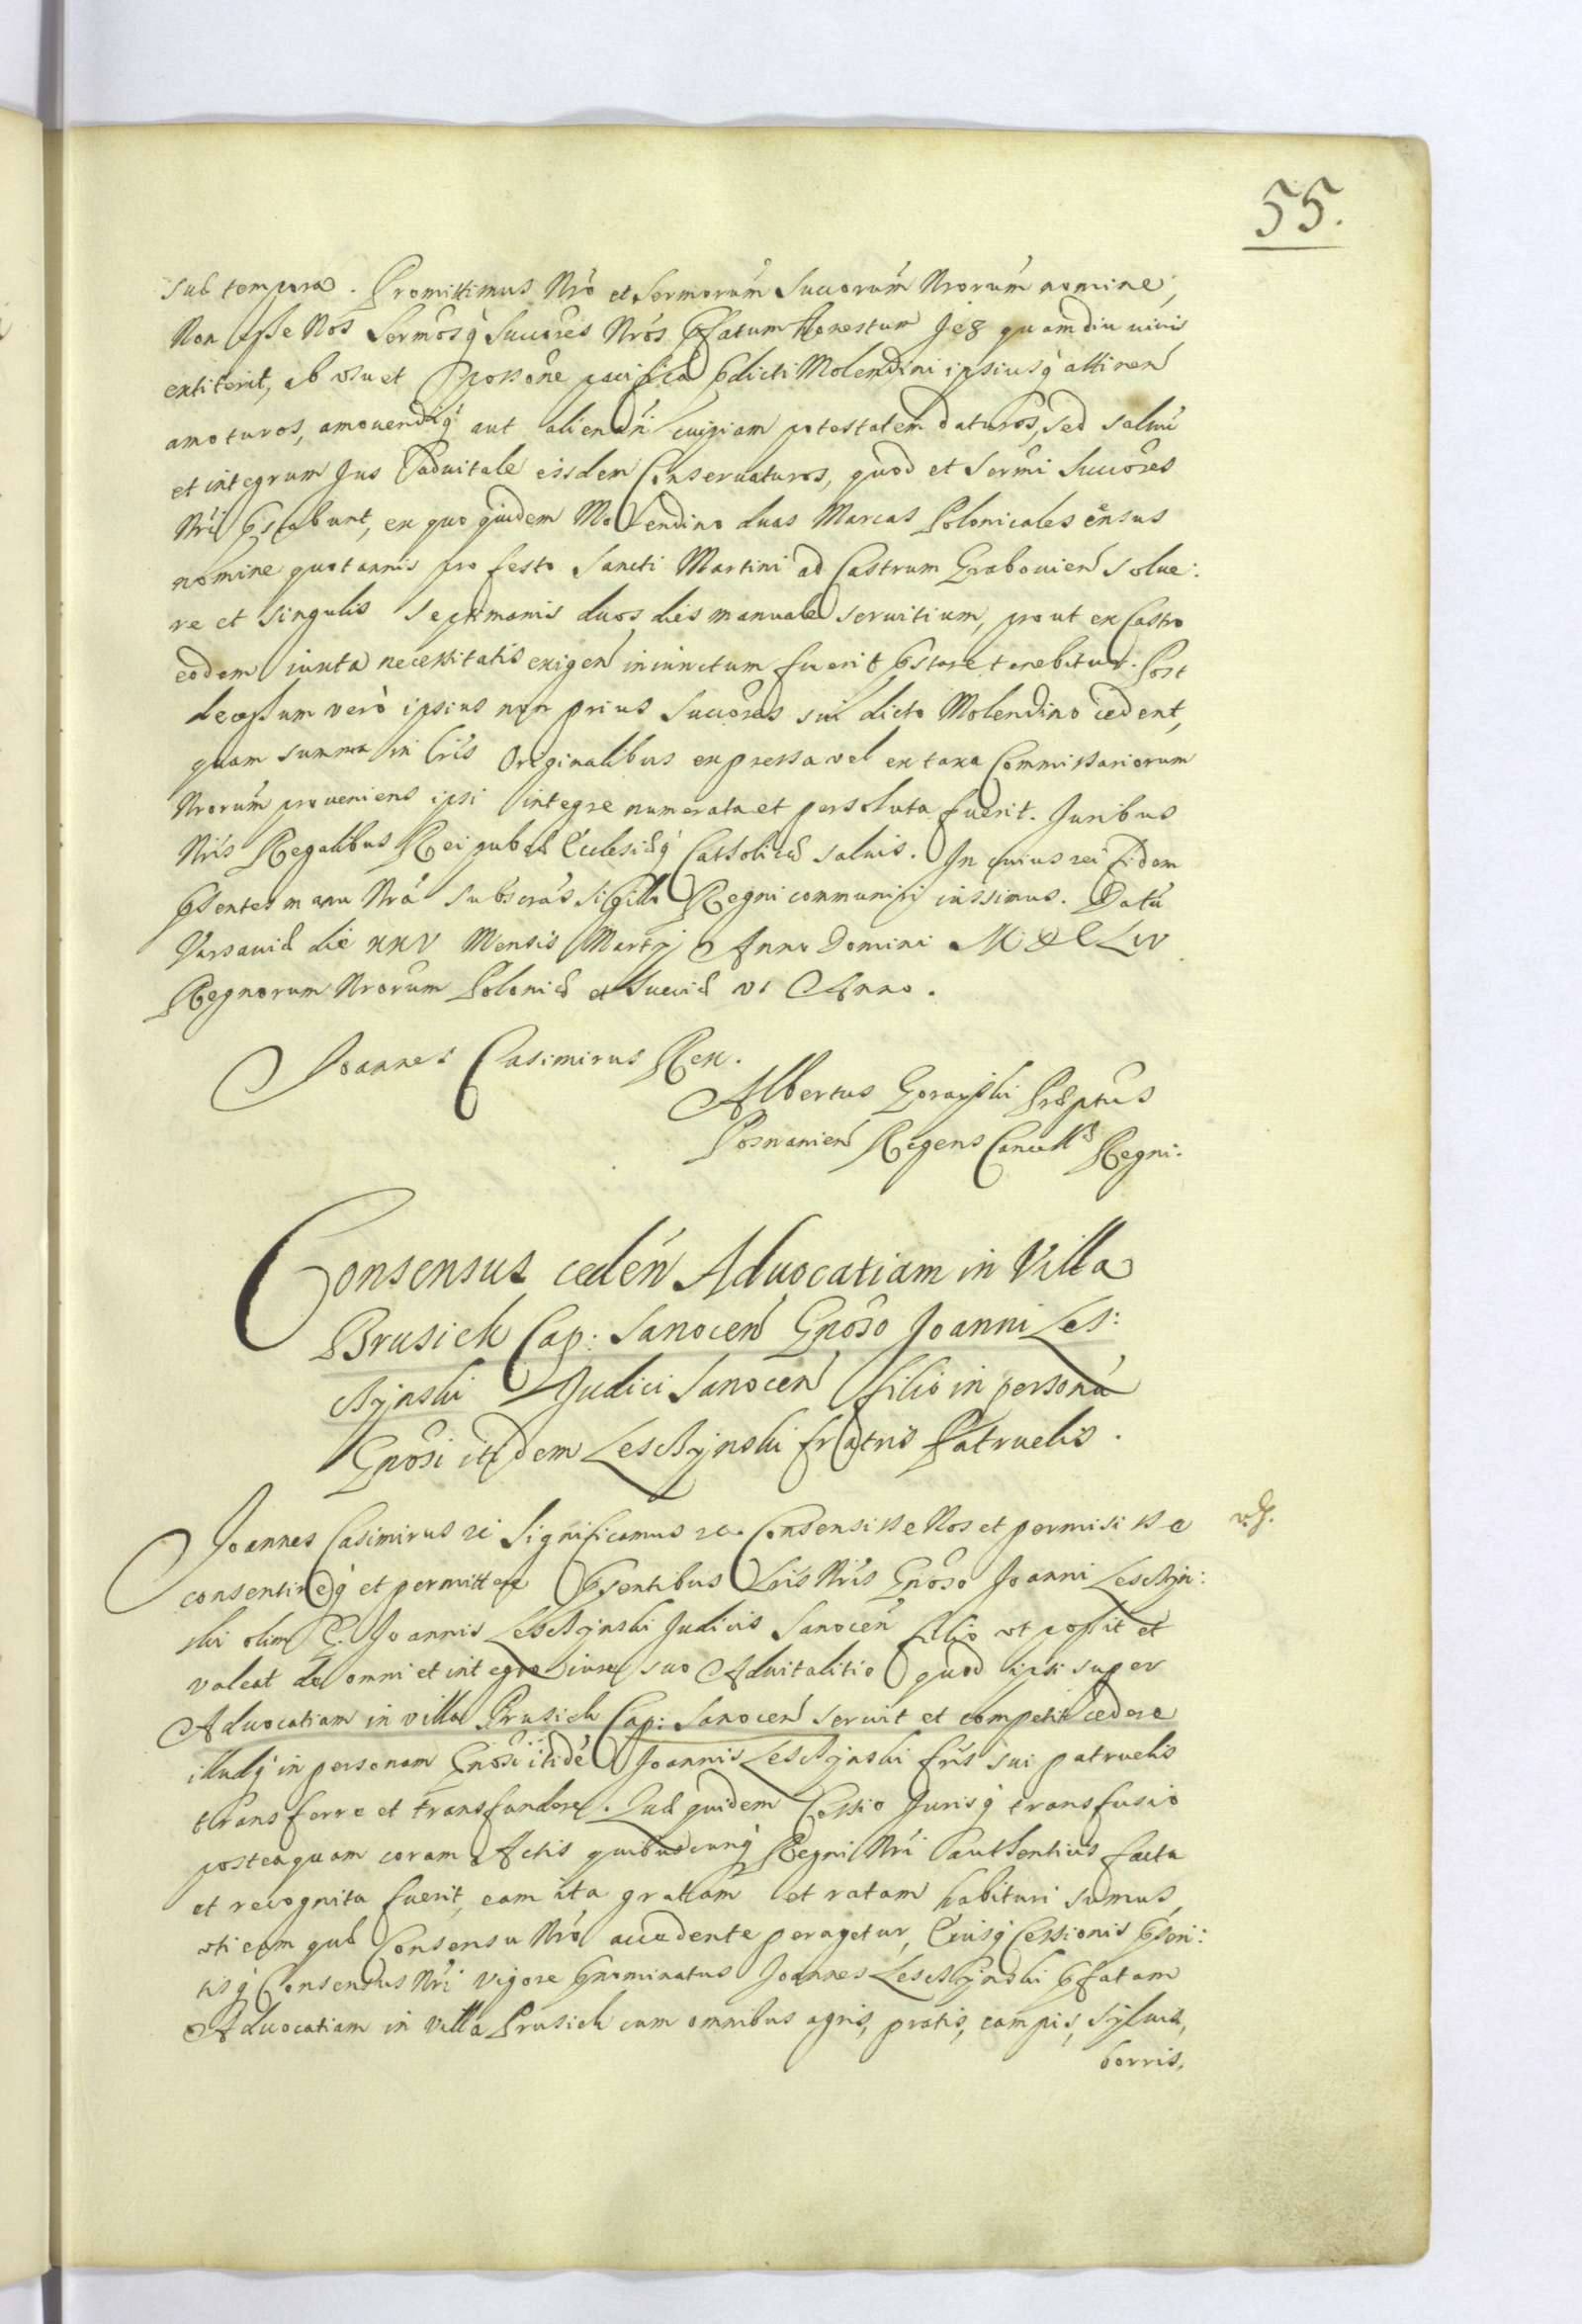 55.
sub tempora. Promittimus Nro et Sermorum Succorum Nrorum nomine,
Non esse Nos Sermosq Succores Nros Pfatum Honestum Jeż quamdiu vivis
extiterit, ab usu et possone pacifica pdicti Molendini ipsiusq attinen
amoturos, amovendiq aut alienandi cuipiam potestatem daturos, sed salvu
et integrum Jus advitale eisdem Conservaturos, quod et Sermi Succores
Nri pstabunt, ex quo quidem Molendino duas Marcas Polonicales census
nomine quotannis pro festo Sancti Martini ad Castrum Grabovien solve:
re et singulis septimanis duos dies manuale servitium, prout ex Castro
eodem iuxta necessitatis exigen iniunctum fuerit pstare tenebitur. Post
decessum verò ipsius non prius Succores sui dicto Molendino cedent,
quam summa in Lris Originalibus expressa vel ex taxa Commissariorum
Nrorum proveniens ipsi integre numerata et persoluta fuerit. Juribus
Nris Regalibus Reipubcae Ecclesiaeq Catholicae salvis. In cuius rei fidem
psentes manu Nra subscras Sigillo Regni communiri iussimus. Datu
Varsaviae die XXV Mensis Martij Anno Domini MDCLIV
Regnorum Nrorum Poloniae et Sueciae VI Anno.
Joannes Casimirus Rex.
Albertus Gorayski Praeptus
Posnanien Regens Cancellae Regni.
Consensus ceden Advocatiam in Villa
Prusiek Cap: Sanocen Gnoso Joanni Les:
czynski Judici Sanocen filio in persona
Gnosi itidem Lesczynski fratris Patruelis.
Joannes Casimirus etc Significamus etc. Consensisse Nos et permisisse
consentireq et permittere psentibus Lris Nris Gnoso Joanni Lesczyn:
ski olim G. Joannis Lesczynski Judicis Sanocen filio ut possit et
valeat de omni et integro iure suo Advitalitio quod ipsi super
Advocatiam in villa Prusiek Cap: Sanocen servit et competit cedere
illudq in personam Gnosi itide Joannis Lesczynski fris sui patruelis
transferre et transfundere. Quae quidem Cessio Jurisq transfusio
posteaquam coram Actis quibuscunq Regni Nri authenticis facta
et recognita fuerit, eam ita gratam et ratam habituri sumus,
uti eam quae Consensu Nro accedente peragetur, Cuiusq Cessionis psen:
tisq Consensus Nri vigore pnominatus Joannes Lesczynski pfatam
Advocatiam in villa Prusiek cum omnibus agris, pratis, campis, sylvis,
borris,